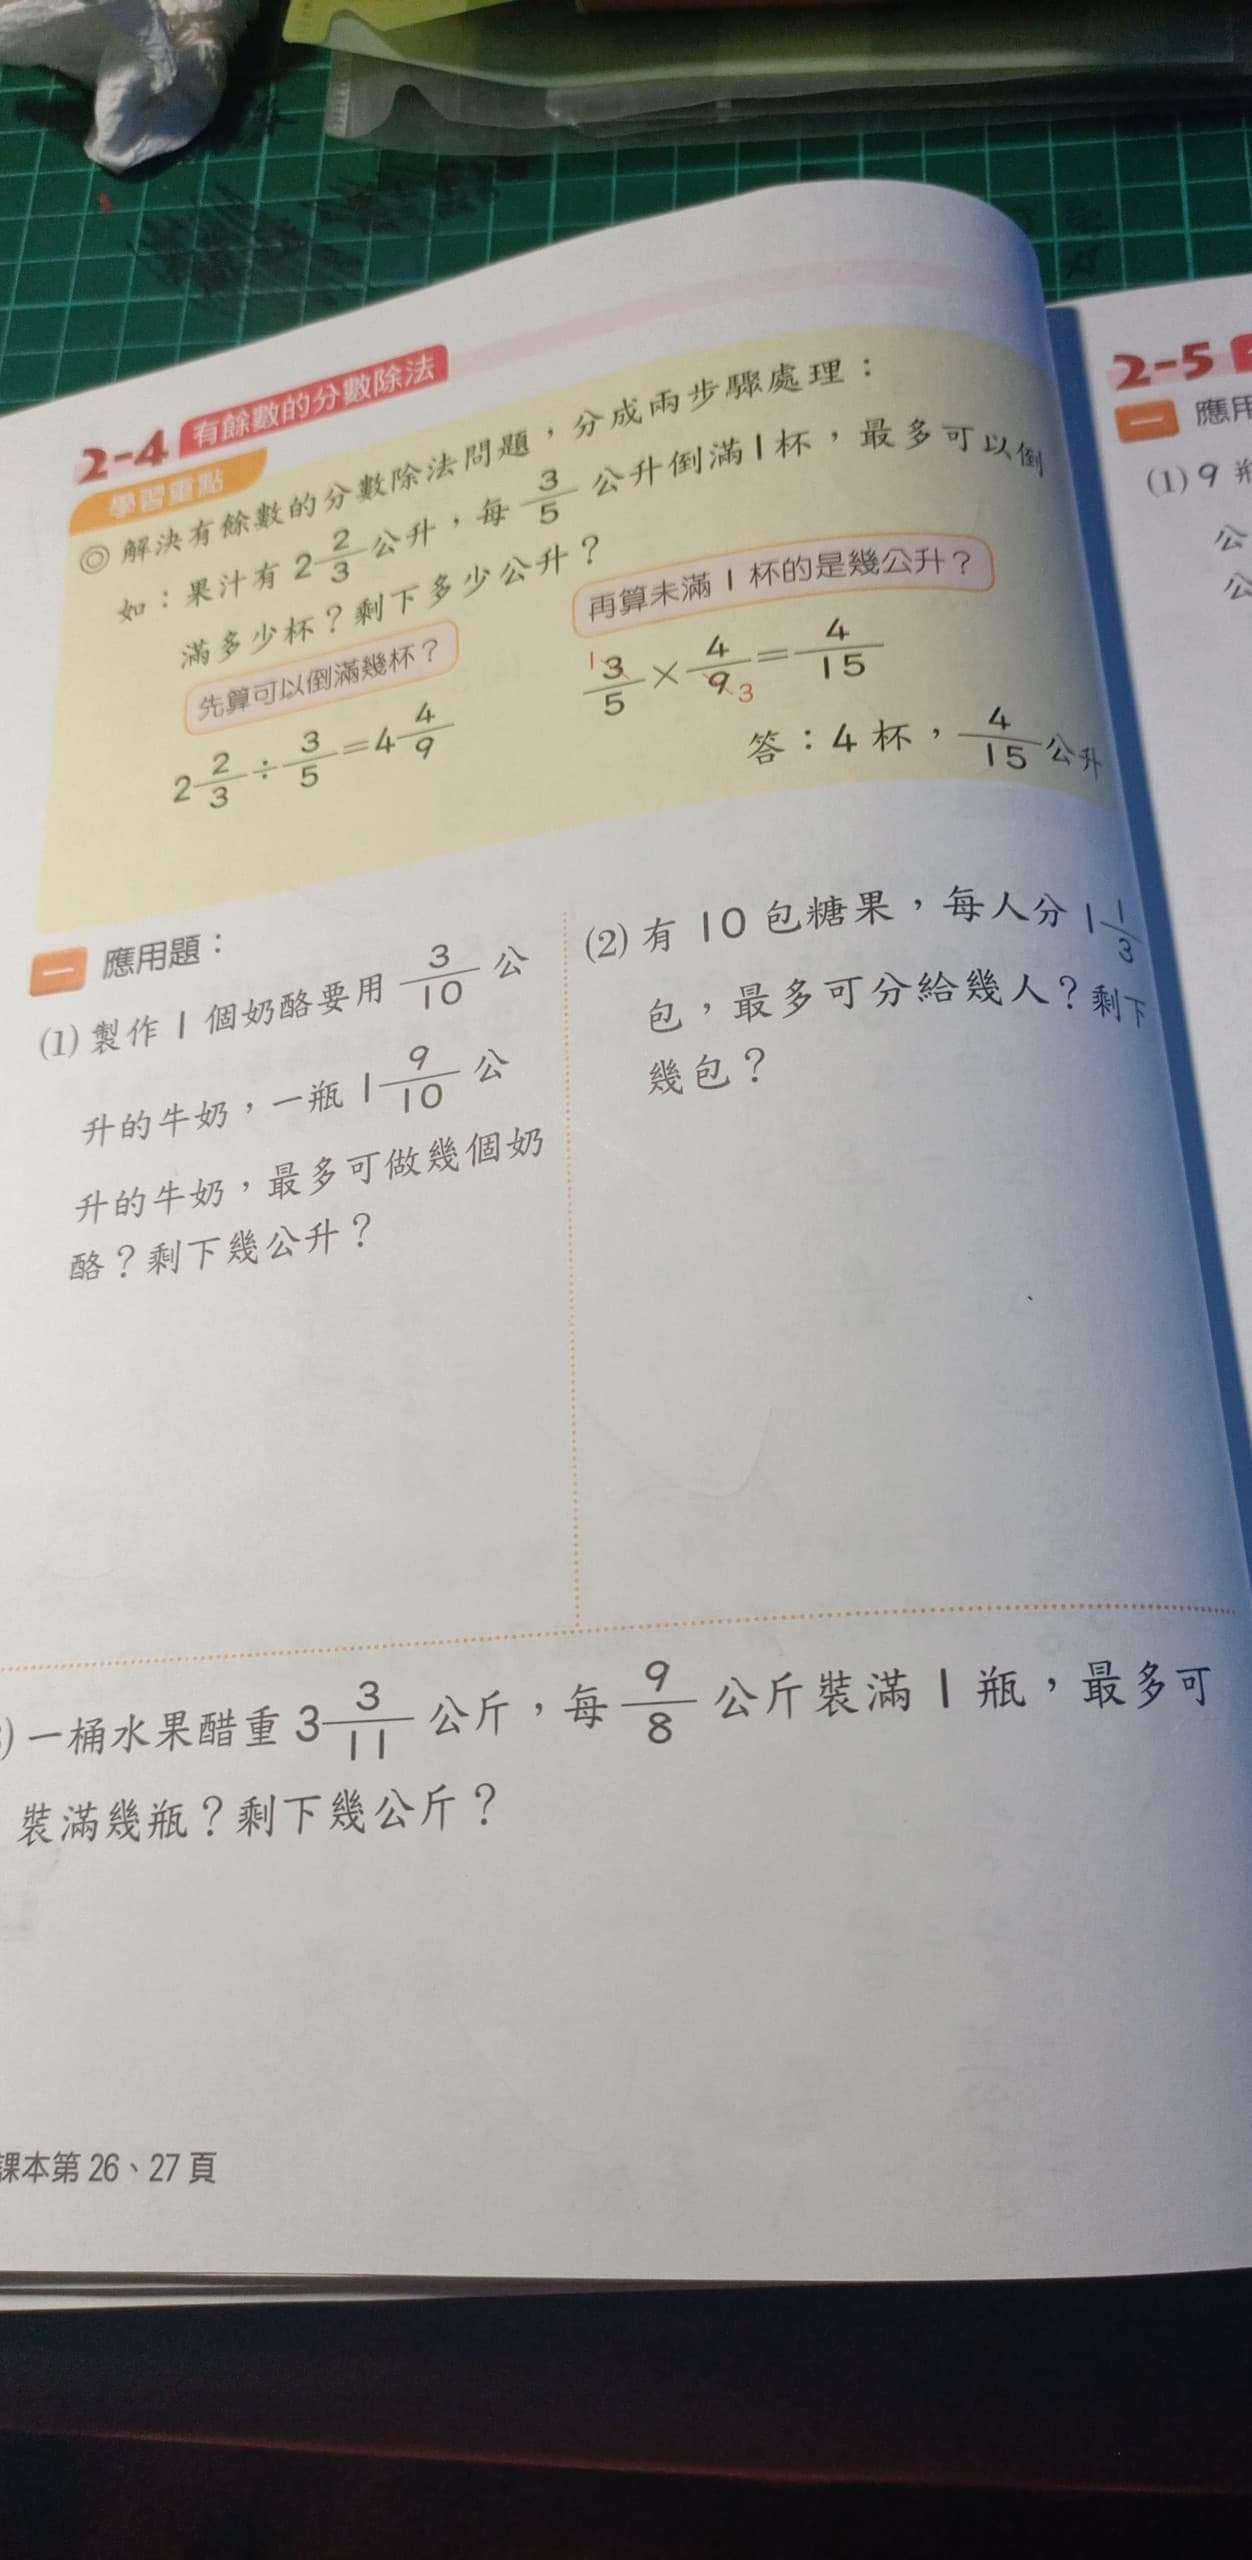 2-4 有餘數的分數除法
學習重點
◎ 解決有餘數的分數除法問題，分成兩步驟處理：
如：果汁有 2 2/3 公升，每 3/5 公升倒滿 1 杯，最多可以倒
滿多少杯？剩下多少公升？
先算可以倒滿幾杯？
2 2/3 ÷ 3/5 = 4 4/9
再算未滿 1 杯的是幾公升？
1
3/5 × 4/9 = 4/15
3
答：4 杯，4/15 公升
一 應用題：
(1) 製作 1 個奶酪要用 3/10 公
升的牛奶，一瓶 1 9/10 公
升的牛奶，最多可做幾個奶
酪？剩下幾公升？
(2) 有 10 包糖果，每人分 1 1/3
包，最多可分給幾人？剩下
幾包？
) 一桶水果醋重 3 3/11 公斤，每 9/8 公斤裝滿 1 瓶，最多可
裝滿幾瓶？剩下幾公斤？
課本第 26、27 頁
2-5
一 應用
(1) 9
公
公